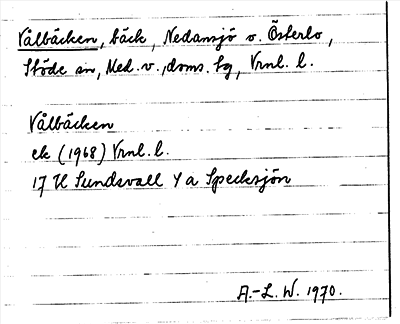 Vålbäcken, bäck, Nedansjö o. Österlo,
Stöde sn, Med. v., doms. hg, Vrnl. l.
Vålbäcken
ek (1968) Vrnl. l.
17 H Sundsvall Y a Specksjön
A.-L. W. 1970.